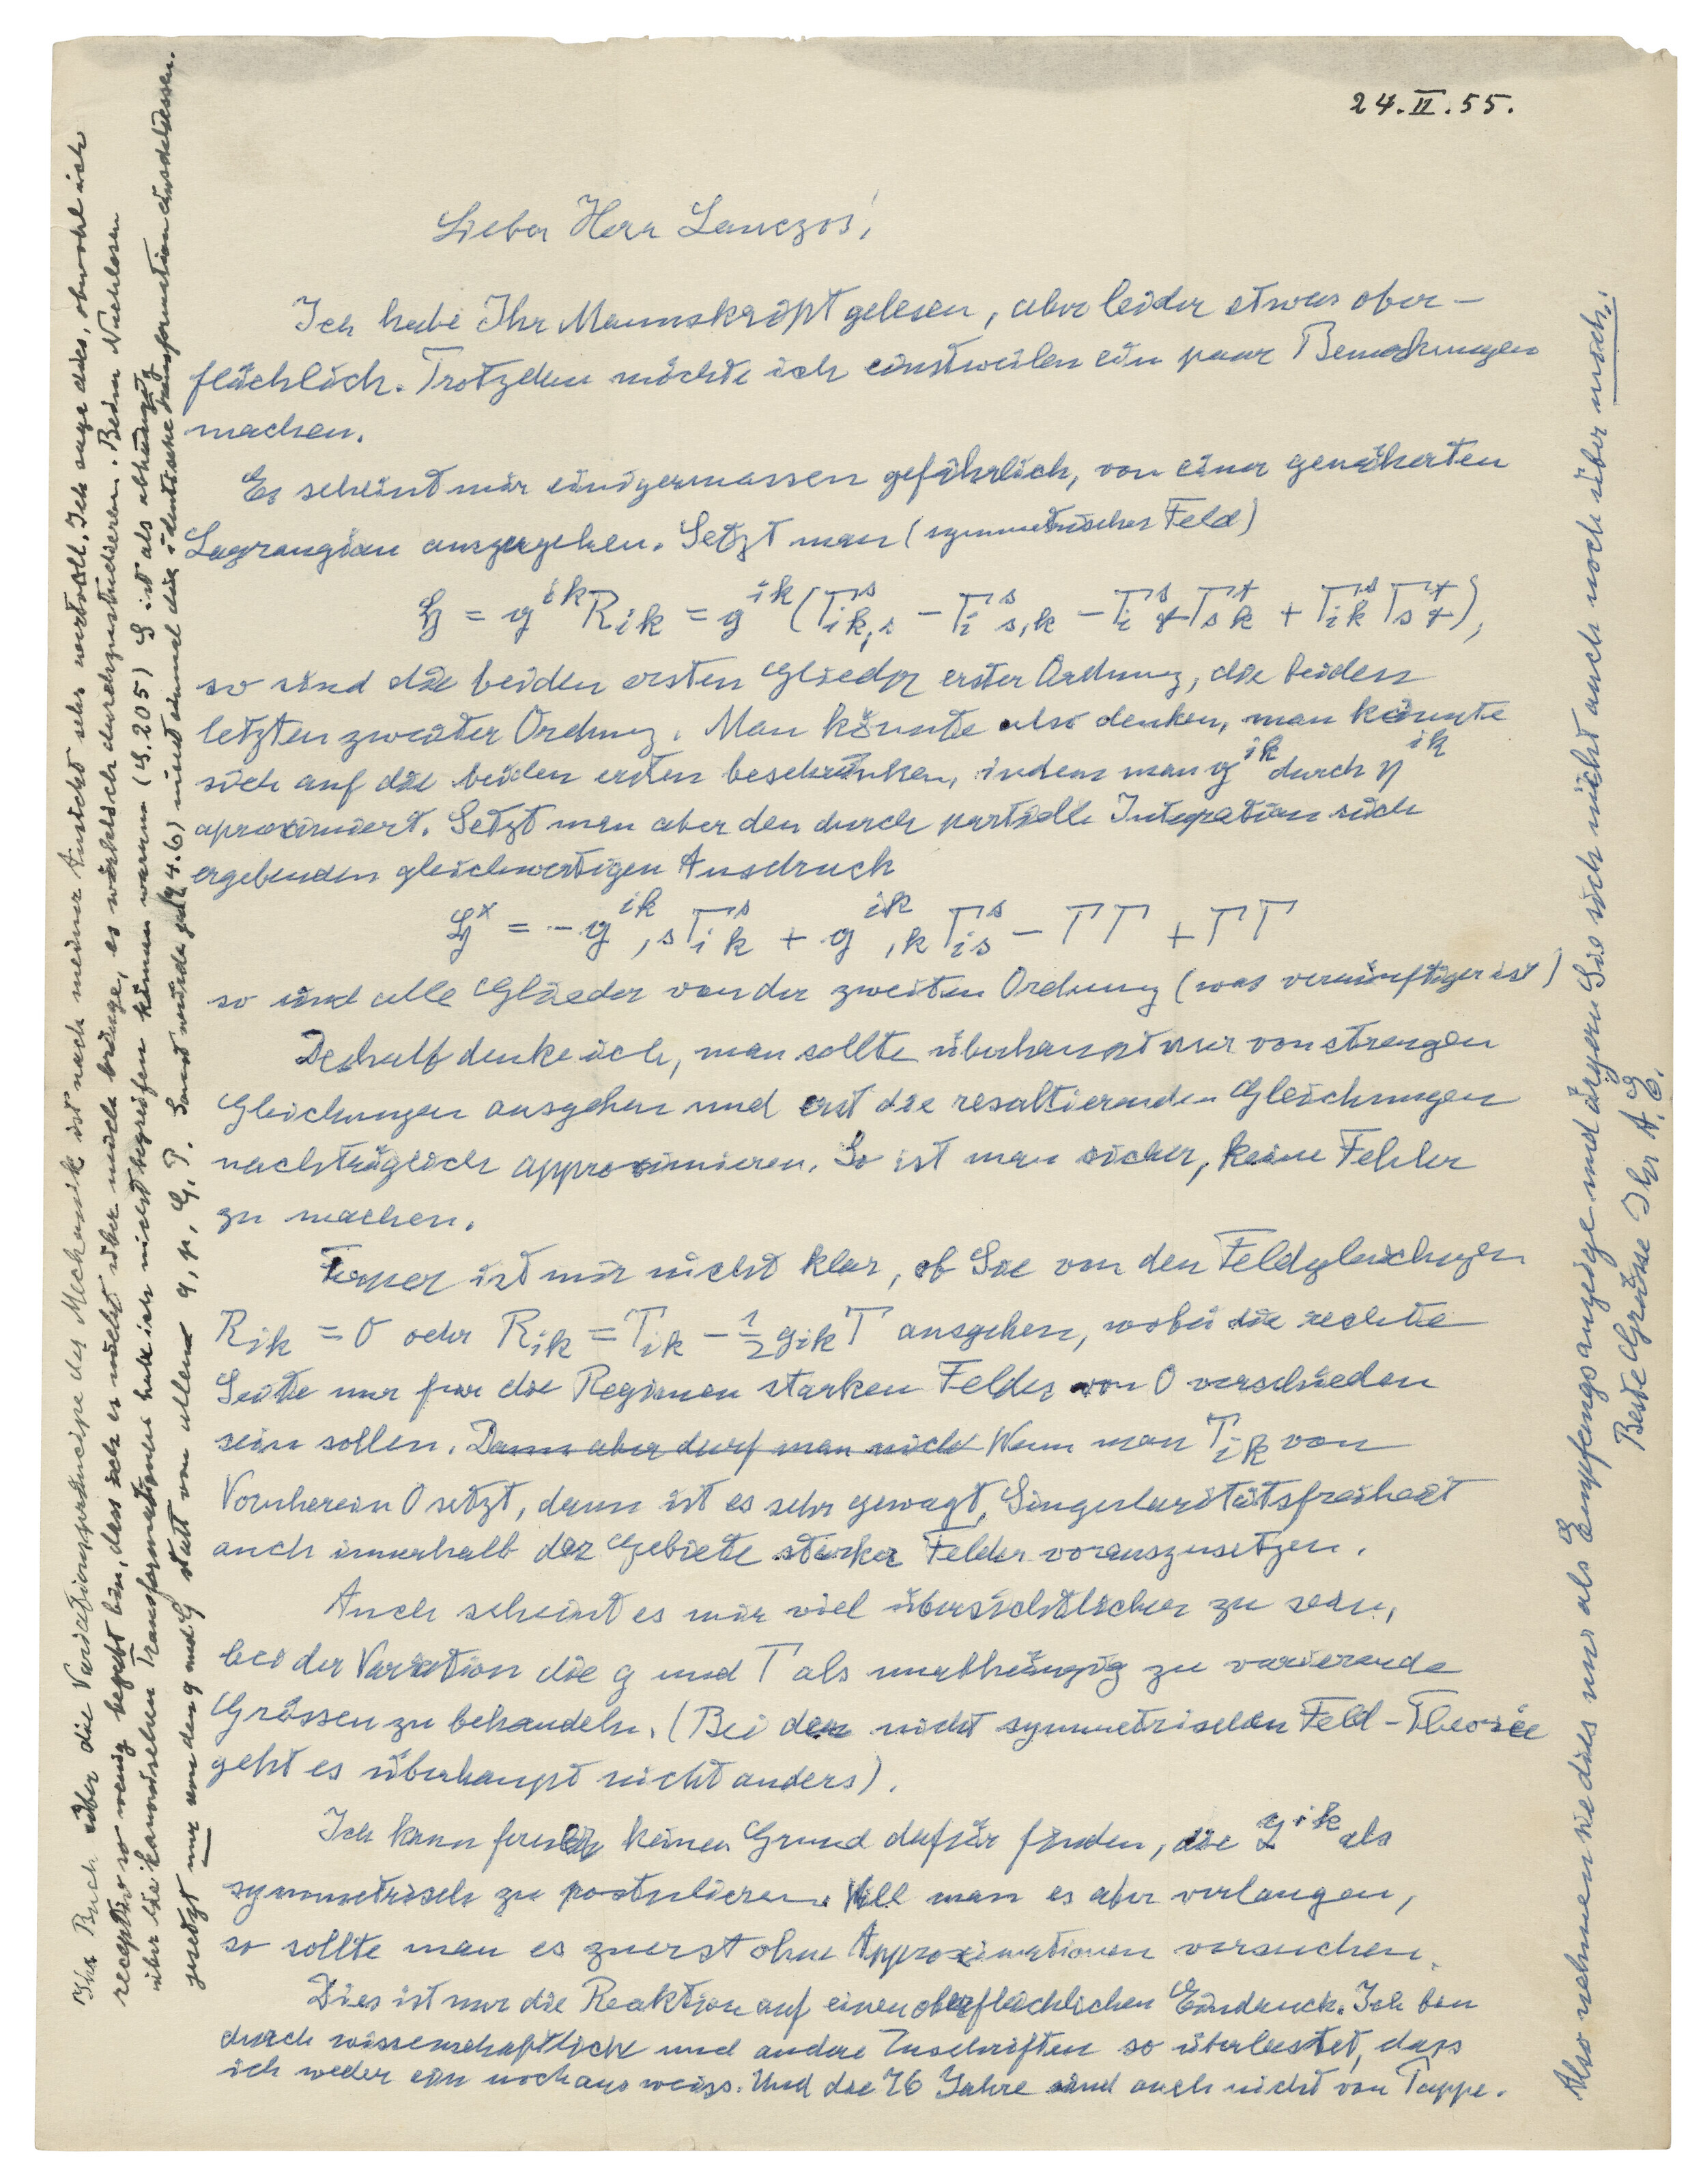 24.II.55.
Lieber Herr Lanczos!
Ich habe Ihr Manuskript gelesen, aber leider etwas ober-
flächlich. Trotzdem möchte ich einstweilen ein paar Bemerkungen
machen.
Es scheint mir einigermassen gefährlich, von einer genäherten
Lagrangian auszugehen. Setzt man (symmetrisches Feld)
H = g^{ik} R_{ik} = g^{ik} (Γ^s_{ik,s} − Γ^s_{is,k} − Γ^s_{it} Γ^t_{sk} + Γ^s_{ik} Γ^t_{st}),
so sind die beiden ersten Glieder erster Ordnung, die beiden
letzten zweiter Ordnung. Man könnte also denken, man könnte
sich auf die beiden ersten beschränken, indem man g^{ik} durch η^{ik}
aproximiert. Setzt man aber den durch partielle Integration sich
ergebenden gleichwertigen Ausdruck
H^x = − g^{ik}_{,s} Γ^s_{ik} + g^{ik}_{,k} Γ^s_{is} − ΓΓ + ΓΓ
so sind alle Glieder von der zweiten Ordnung (was vernünftiger ist)
Deshalb denke ich, man sollte überhaupt nur von strengen
Gleichungen ausgehen und erst die resultierenden Gleichungen
nachträglich approximieren. So ist man sicher, keine Fehler
zu machen.
Ferner ist mir nicht klar, ob Sie von den Feldgleichungen
R_{ik} = 0 oder R_{ik} = T_{ik} − ½ g_{ik} T ausgehen, wobei die rechte
Seite nur für die Regionen starken Feldes von 0 verschieden
sein sollen. Dann aber darf man nicht Wenn man T_{ik} von
Vornherein 0 setzt, dann ist es sehr gewagt, Singularitätsfreiheit
auch innerhalb der Gebiete starker Felder vorauszusetzen.
Auch scheint es mir viel übersichtlicher zu sein,
bei der Variation die g und Γ als unabhängig zu varierende
Grössen zu behandeln. (Bei der nicht symmetrischen Feld-Theorie
geht es überhaupt nicht anders).
Ich kann ferner keinen Grund dafür finden, die g^{ik} als
symmetrisch zu postulieren. Will man es aber verlangen,
so sollte man es zuerst ohne Approximationen versuchen.
Dies ist nur die Reaktion auf einen oberflächlichen Eindruck. Ich bin
durch wissenschaftliche und andere Zuschriften so überlastet, dass
ich weder ein noch aus weiss. Und die 76 Jahre sind auch nicht von Pappe.
Also nehmen sie dies nur als Empfangsanzeige und ärgern Sie sich nicht auch noch über mich.
Beste Grüsse Ihr A. E.
Ihr Buch über die Variationsprincipe der Mechanik ist nach meiner Ansicht sehr wertvoll. Ich sage dies, obwohl ich
receptiv so wenig begabt bin, dass ich es nicht über mich bringe, es wirklich durchzustudieren. Beim Nachlesen
über die kanonischen Transformationen habe ich nicht begreifen können warum (S. 205) S ist als abhängig
gesetzt nur von den q und Q statt von allen q, p, Q, P. Sonst würde ja (74.6) nicht einmal die identische Transformation einschliessen.